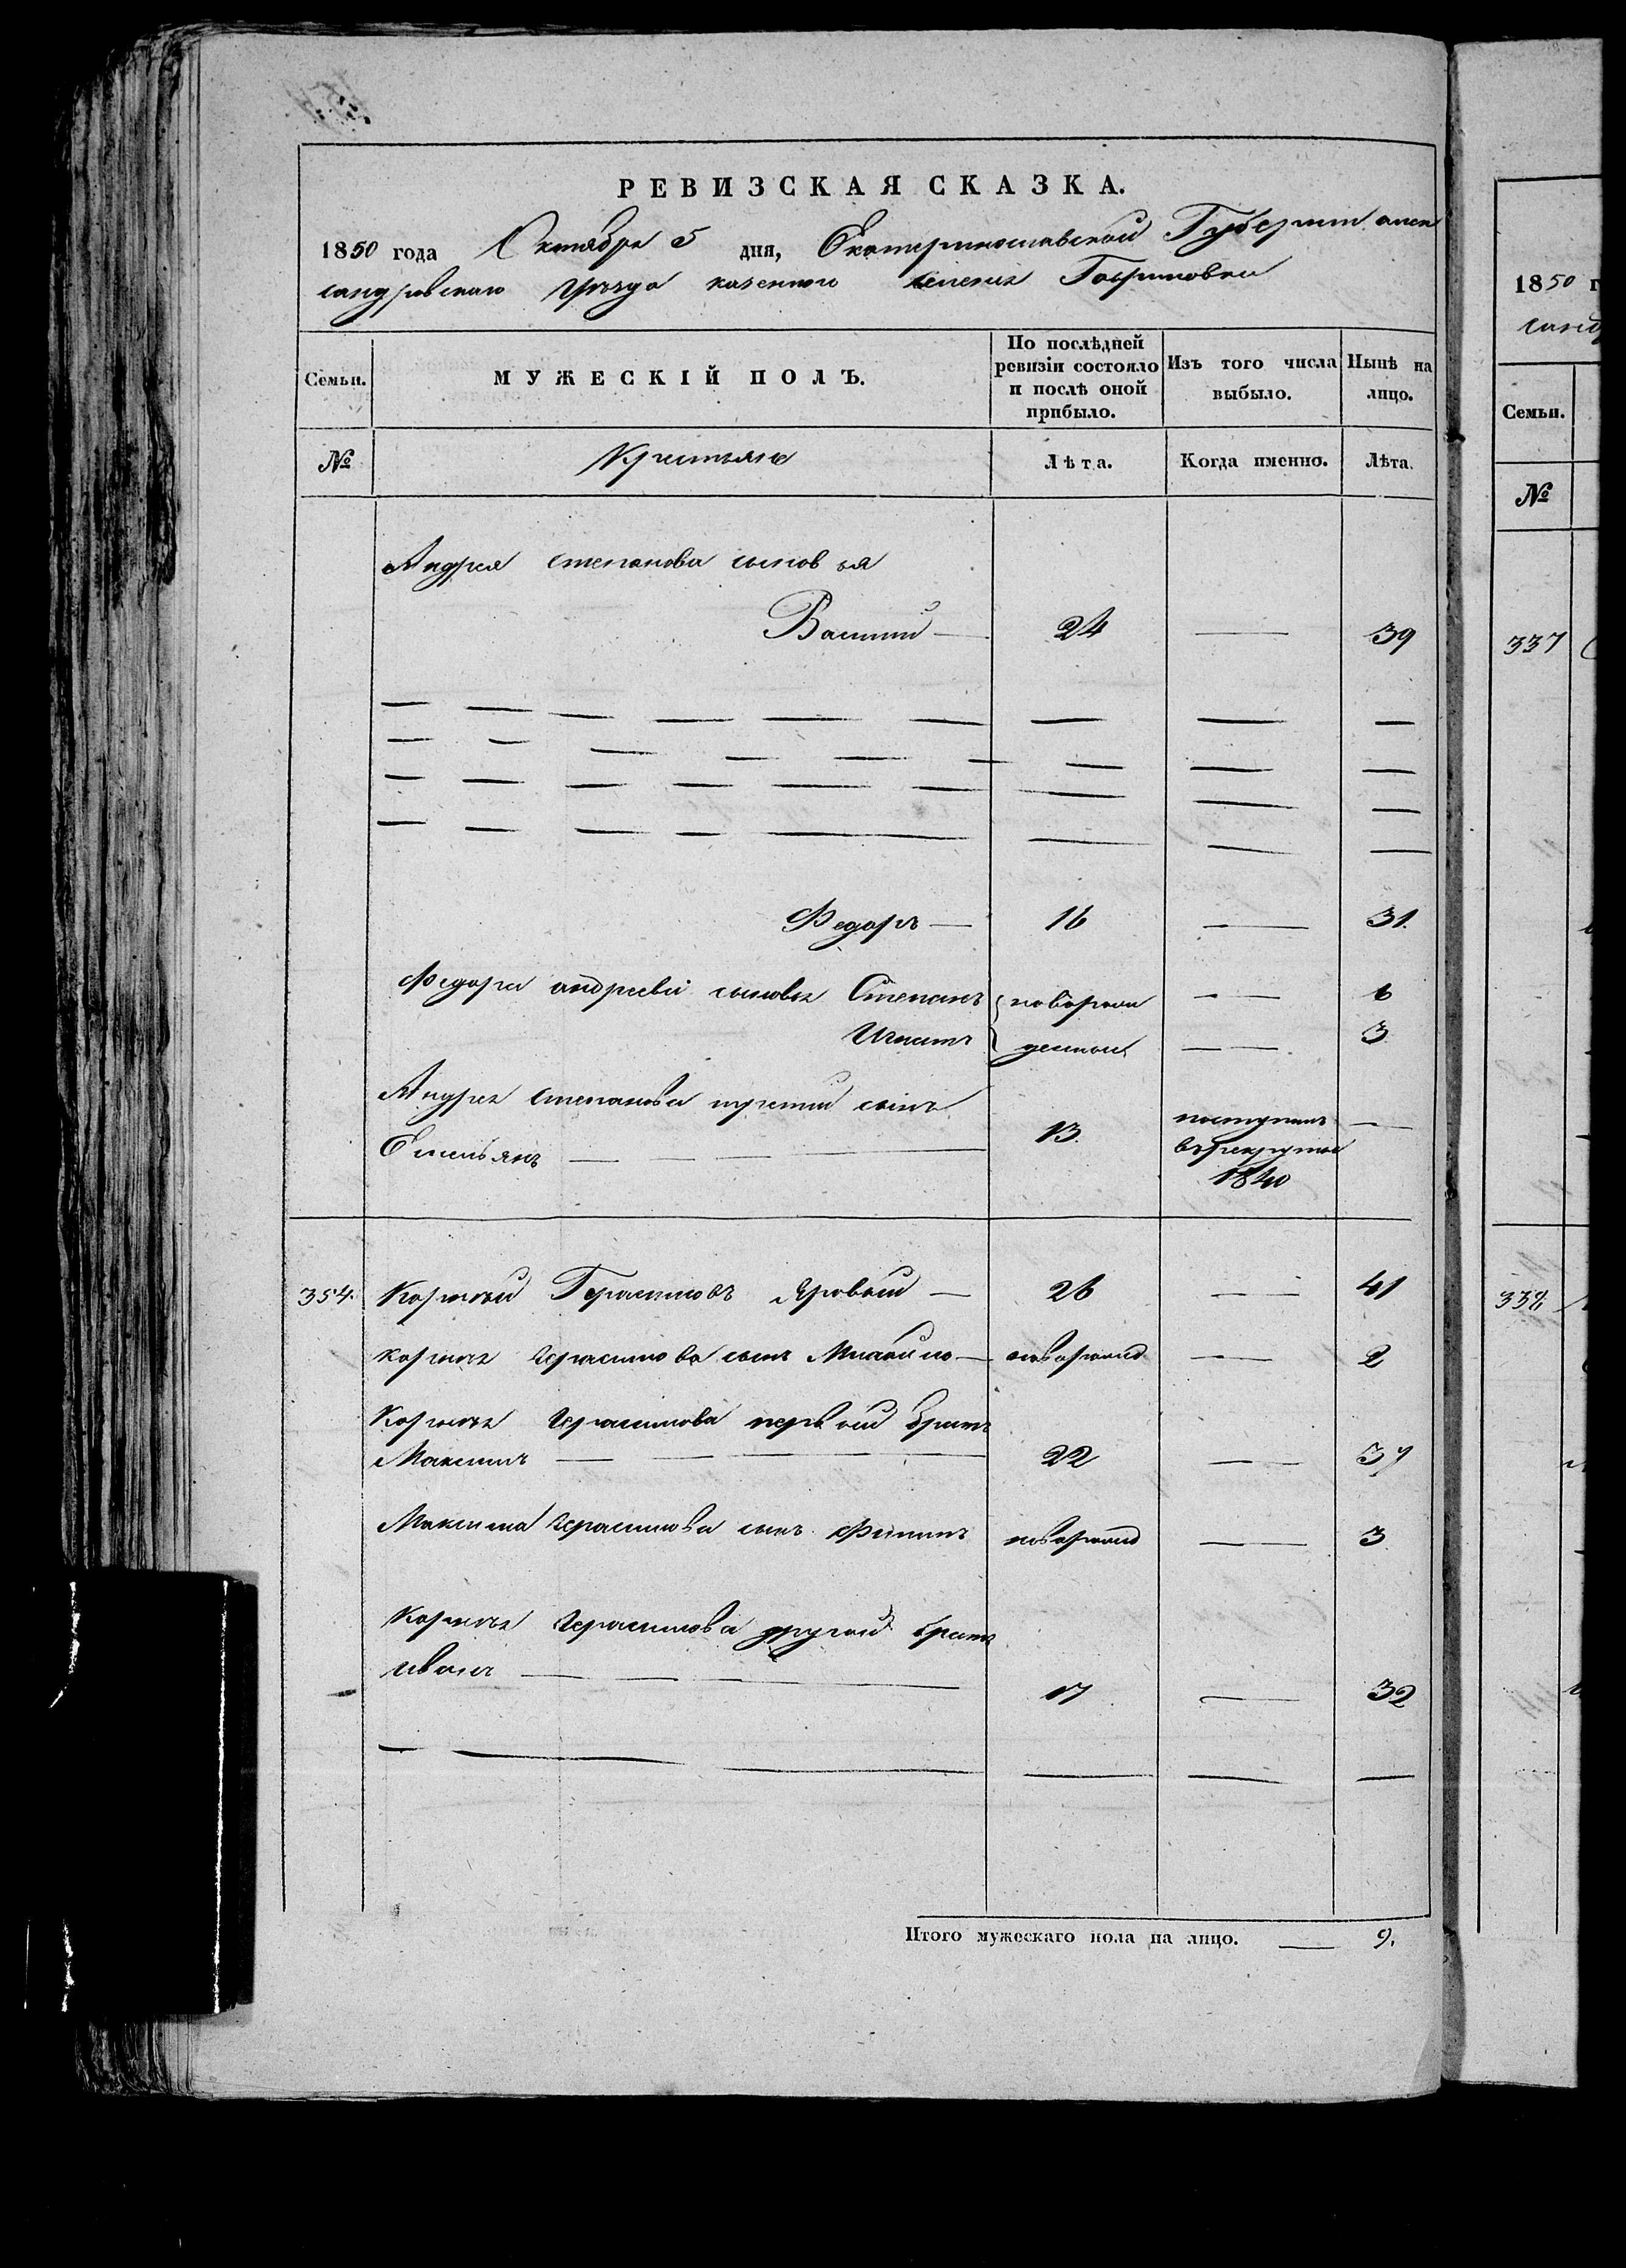 РЕВИЗСКАЯ СКАЗКА.
1850 года Октября 5 дня, Екатеринославской Губернии алек
сандровскаго уѣзда казеннаго селенія Гавриловки
Семьи. МУЖЕСКІЙ ПОЛЪ. По послѣдней ревизіи состояло и послѣ оной прибыло. Изъ того числа выбыло. Нынѣ на лицо.
№ Крестьяне Лѣта. Когда именно. Лѣта.
Андрея степанова сыновья
Василий — 24 — 39
Федоръ — 16 — 31.
Федора андреева сыновья Степанъ новорож — 6
Игнатъ денные — 3
Андрея степанова третий сынъ
Емельянъ — 13. поступилъ въ рекруты 1840 —
354. Корней Герасимовъ Яровый — 26 — 41
Корнея Герасимова сынъ Михайло — новорожд — 2
Корнея Герасимова первый братъ
Максимъ — 22 — 37
Максима Герасимова сынъ Филипъ новорожд — 3
Корнея Герасимова другой братъ
иванъ — 17 — 32
Итого мужескаго пола на лицо. — 9.
1850 г
санд
Семьи.
№
337
338